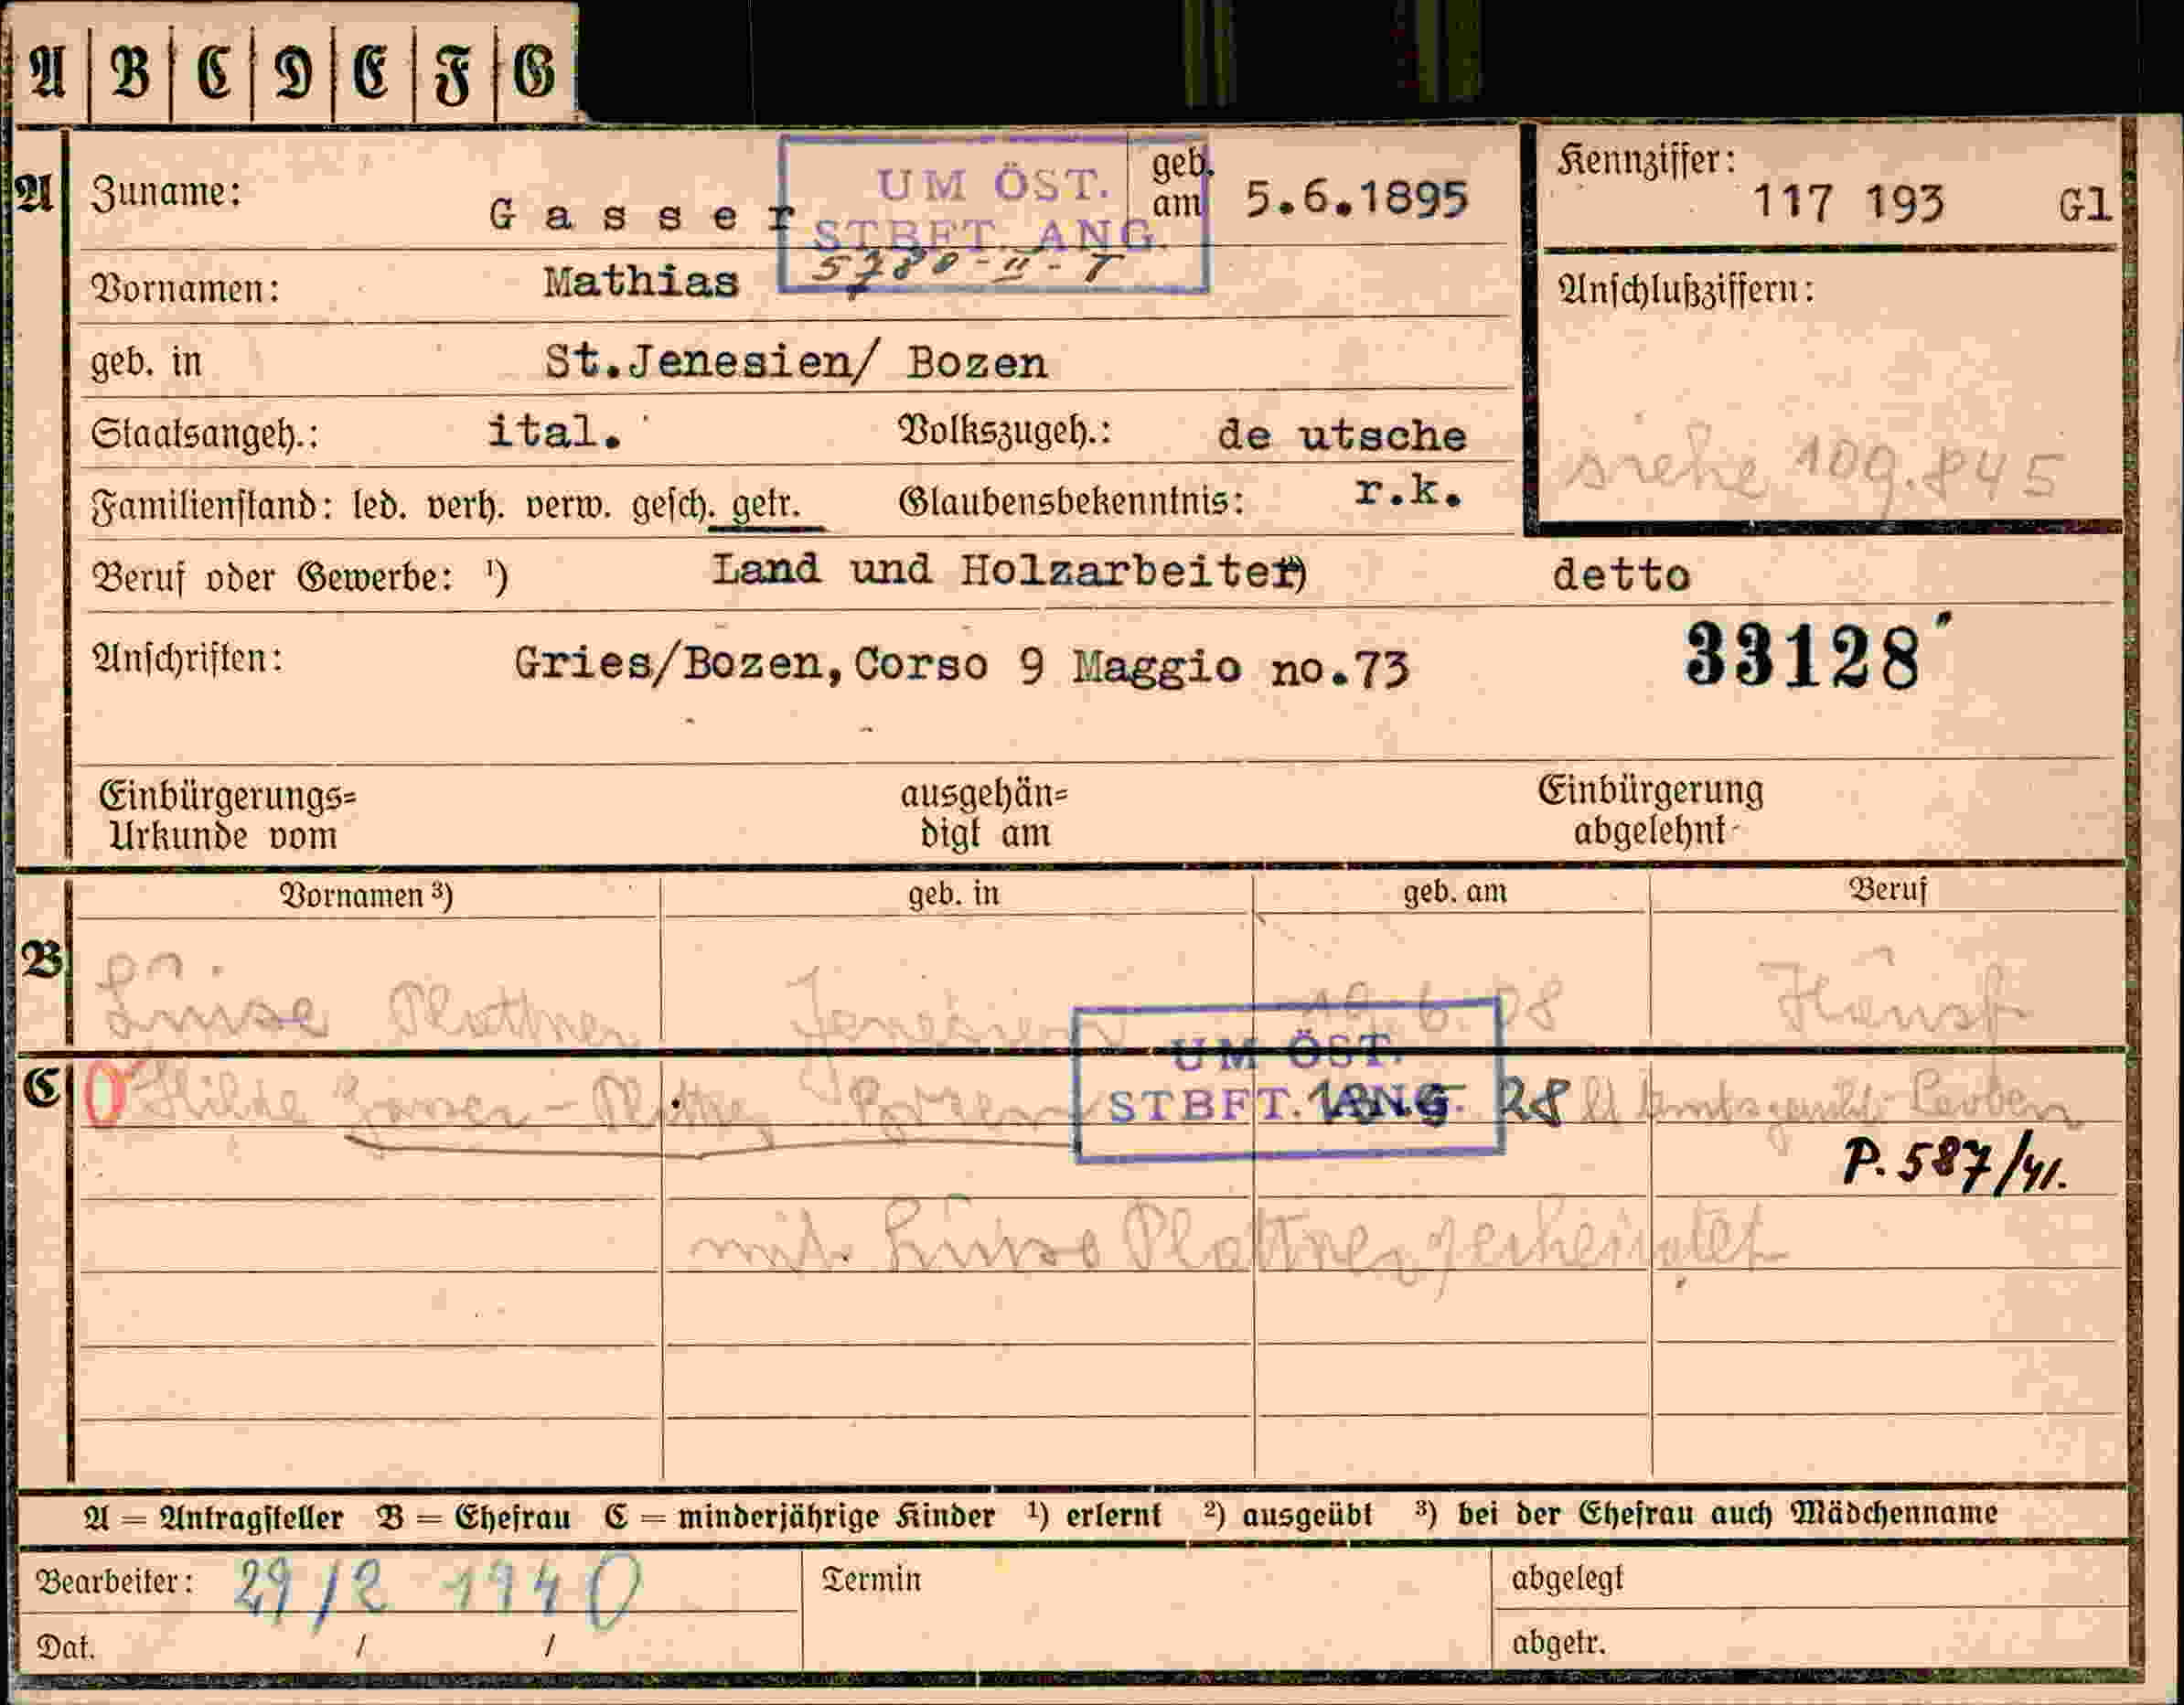 A B C D E F G
A Zuname: Gasser geb. am 5.6.1895 Kennziffer: 117 193 Gl
UM ÖST.
STBFT. ANG.
5780-II-T
Vornamen: Mathias Anschlußziffern:
geb. in St.Jenesien/ Bozen
Staatsangeh.: ital. Volkszugeh.: de utsche
siehe 109.845
Familienstand: led. verh. verw. gesch. getr. Glaubensbekenntnis: r.k.
Beruf oder Gewerbe: ¹) Land und Holzarbeiter ²) detto
Anschriften: Gries/Bozen,Corso 9 Maggio no.73 33128
Einbürgerungs= ausgehän= Einbürgerung
Urkunde vom digt am abgelehnt
Vornamen ³) geb. in geb. am Beruf
B Luise Plattner Jenesien 19.6.08 Hausf
UM ÖST.
STBFT. ANG.
C Hilde Gasser-Plattner Bozen 18.5 28 Amtsgericht Leoben
P. 587/41.
mit Luise Plattner verheiratet
A = Antragsteller B = Ehefrau C = minderjährige Kinder ¹) erlernt ²) ausgeübt ³) bei der Ehefrau auch Mädchenname
Bearbeiter: 29/2 1940 Termin abgelegt
Dat. / / abgetr.